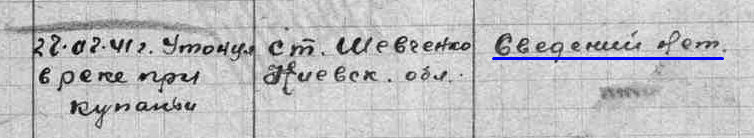 27.07.41г. Утонул
в реке при
купаньи
ст. Шевченко
Киевск. обл.
Сведений нет.